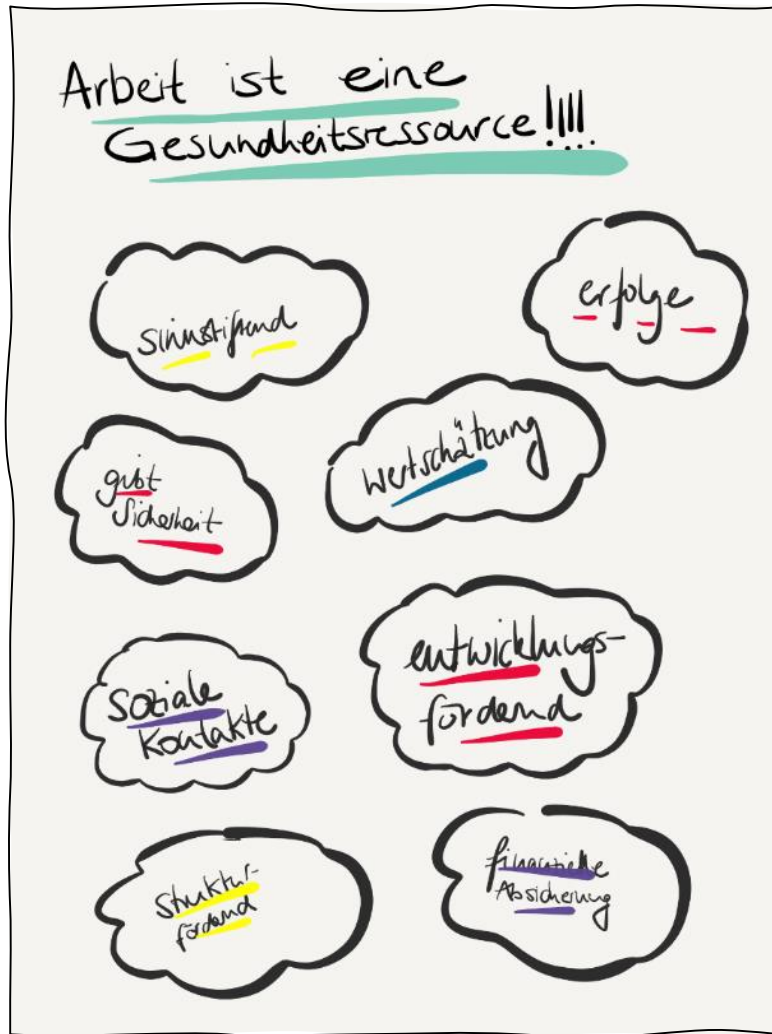 Arbeit ist eine
Gesundheitsressource!!!!
sinnstiftend
erfolge
gibt
Sicherheit
wertschätzung
soziale
Kontakte
entwicklungs-
fördernd
struktur-
fördernd
finanzielle
Absicherung